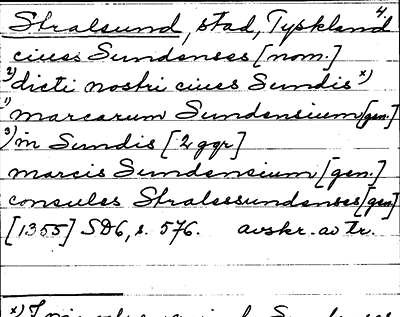 4
Stralsund, stad, Tyskland
ciues Sundenses [nom.]
2) dicti nostri ciues Sundis x)
1) marcarum Sundensium [gen.]
3) in Sundis [2 ggr]
marcis Sundensium [gen.]
consules Stralessundenses [gen]
[1355] SD6, s. 576. avskr. av Tr.
x)